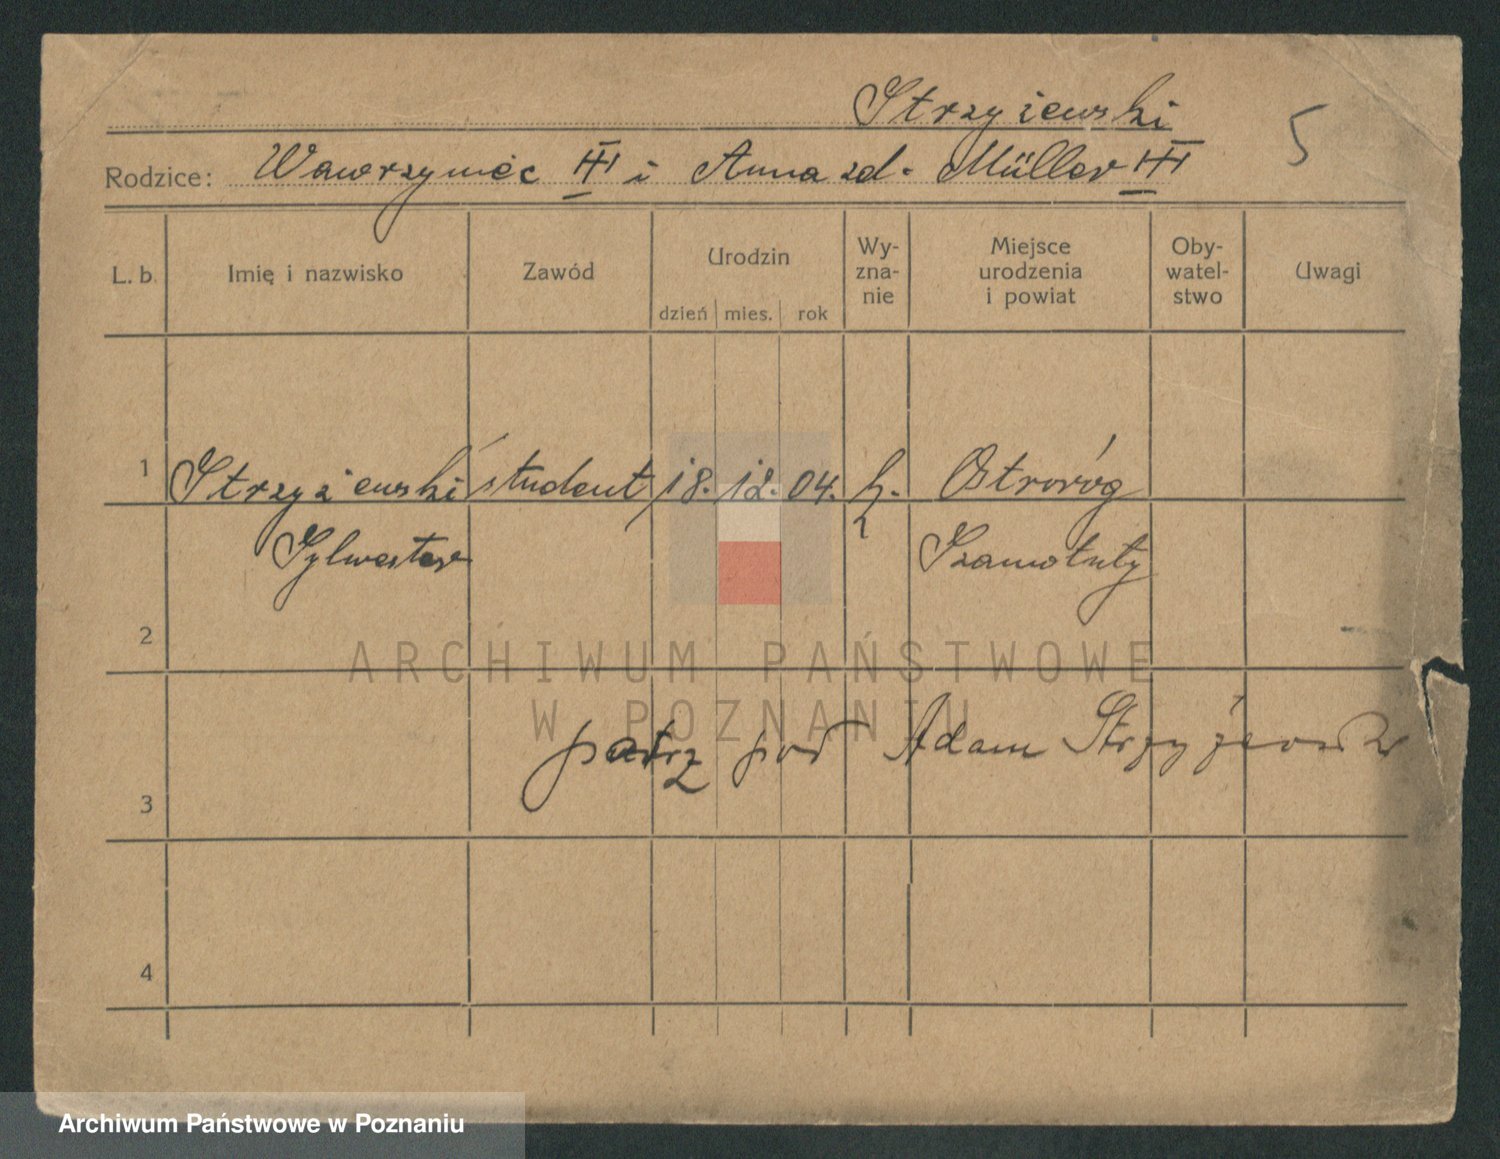 Strzyżewski
5
Rodzice: Wawrzyniec i Anna zd. Müller
L. b. Imię i nazwisko Zawód Urodzin dzień mies. rok Wy-zna-nie Miejsce urodzenia i powiat Oby-watel-stwo Uwagi
1 Strzyżewski student 18. 12. 04. k. Ostroróg
Sylwester Szamotuły
2
ARCHIWUM PAŃSTWOWE
W POZNANIU
patrz pod Adam Strzyżewski
3
4
Archiwum Państwowe w Poznaniu